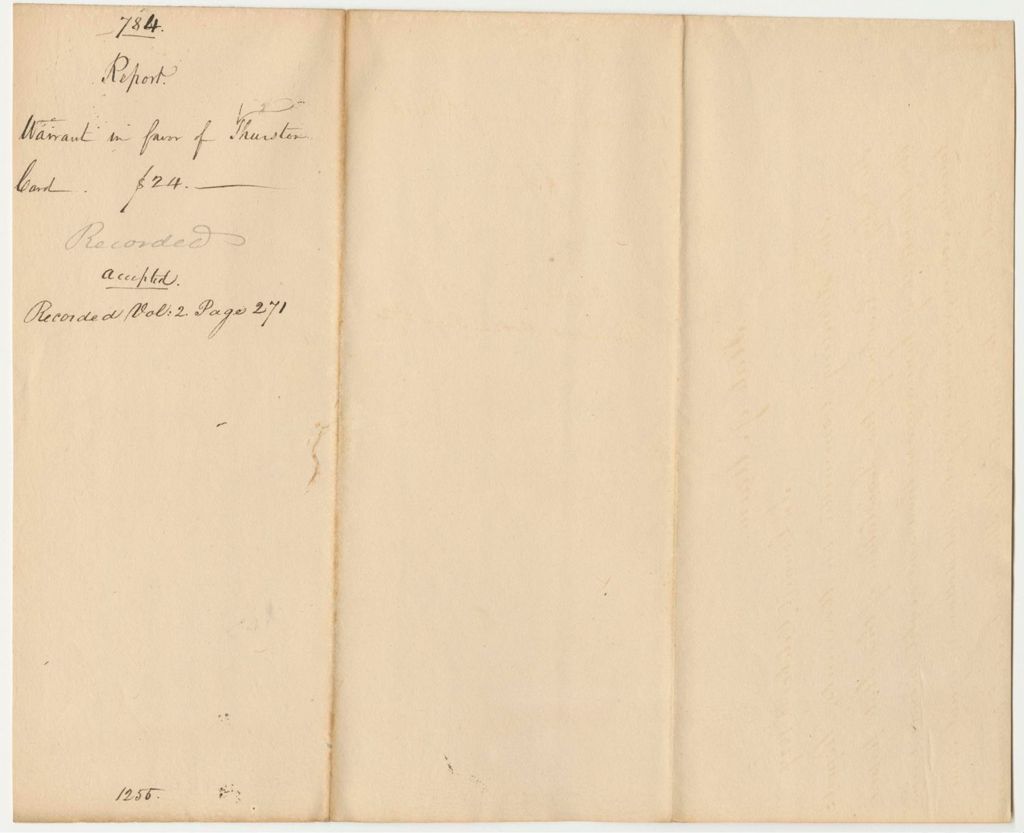 784.
Report.
Warrant in favor of Thurston
Card. $24.
Recorded
accepted.
Recorded Vol: 2. Page 271
1255.